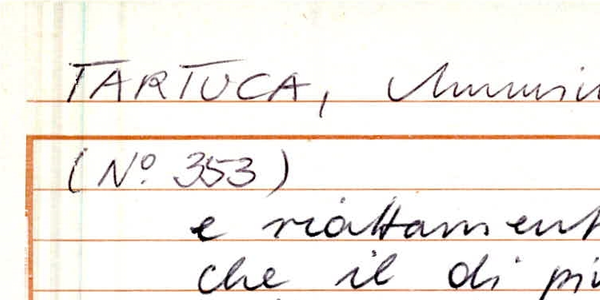 TARTUCA,
(Nº 353)
e riattament
che il di più